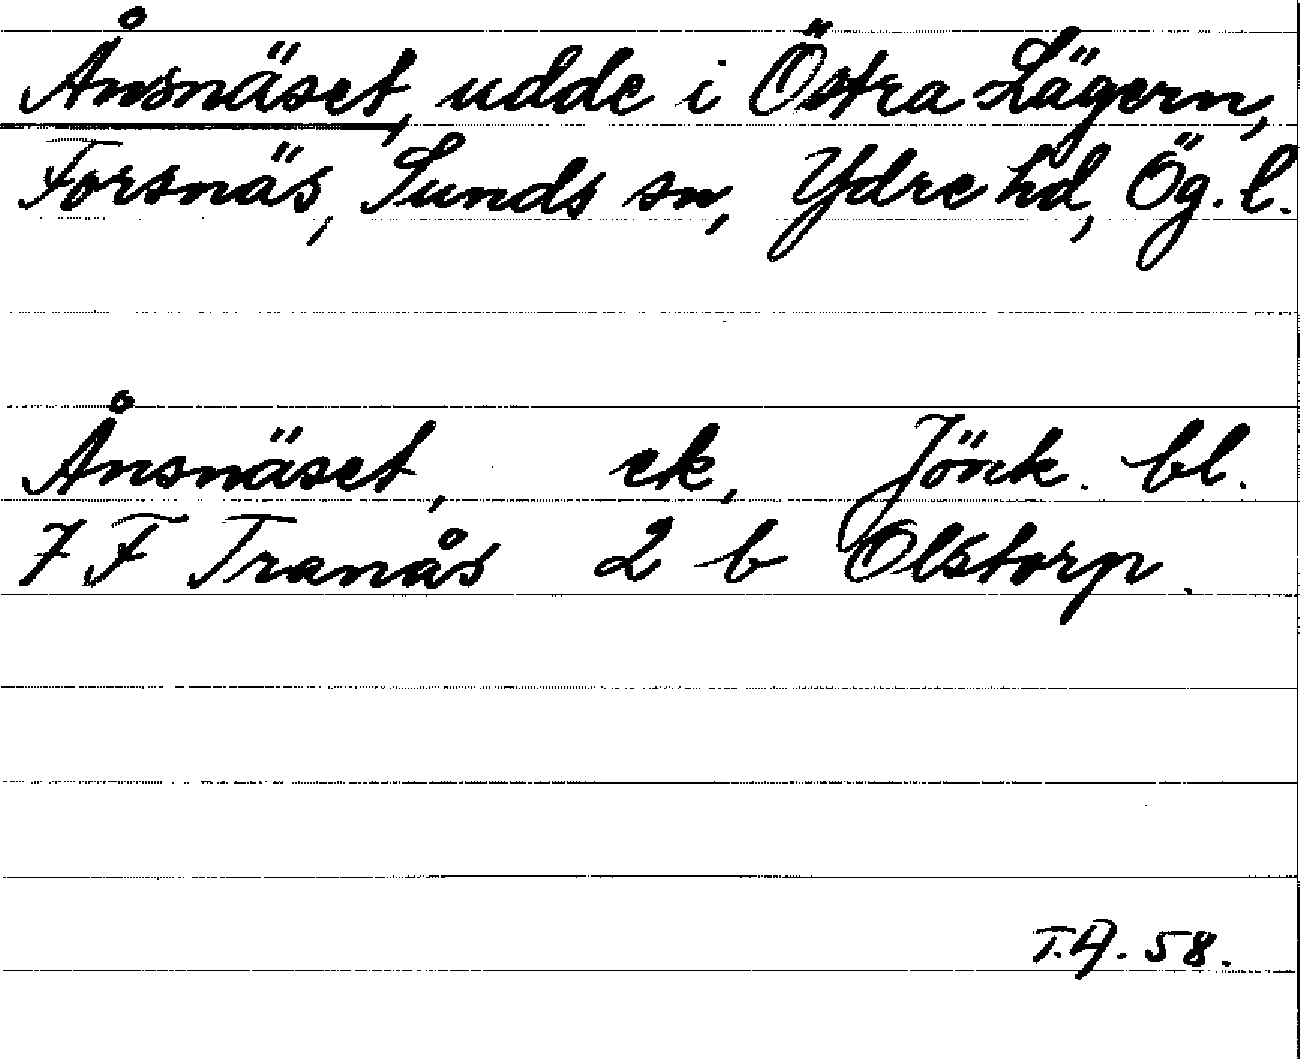 Ånsnäset, udde i Östra Lägern,
Forsnäs, Sunds sn, Ydre hd, Ög. l.
Ånsnäset, ek, Jönk. bl.
7 F Tranås 2 b Olstorp.
T.A. 58.